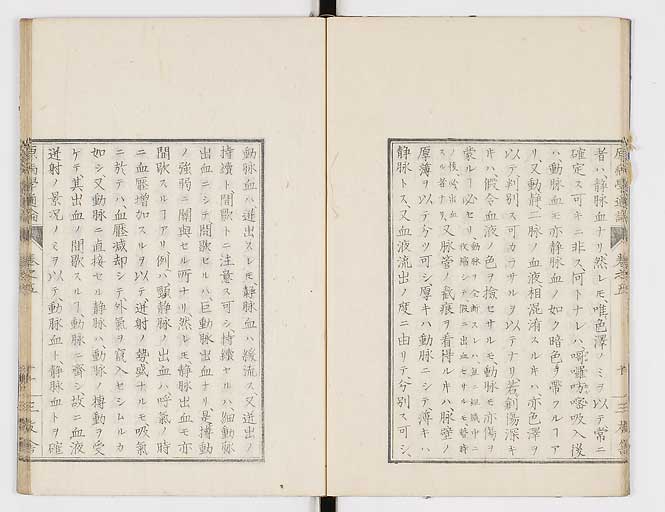 者ハ、靜脉血ナリ然レ𪜈、唯色澤ノミヲ以テ常ニ
確定ス可キニ非ス、何トナレハ、哥囉仿謨吸入後
ハ、動脉血モ亦靜脉血ノ如ク暗色ヲ帶フルヿア
リ、又動靜二脉ノ血液相混淆スルキハ亦色澤ヲ
以テ判別ス可カラサルヲ以テナリ若創傷深キ
キハ、假令血液ノ色ヲ撿セサルモ、動脉モ亦傷ヲ
蒙ルヿ必セリ
又脉管ノ截痕ヲ看得ルキハ脉壁ノ
厚薄ヲ以テ分ツ可シ厚キハ動脉ニシテ薄キハ
靜脉トス又血液流出ノ度ニ由リテ分別ス可シ、
動脉血ハ迸出スレ𪜈、靜脉血ハ緩流ス又迸出ノ
持續ト間歇トニ注意ス可シ持續セルハ細動脉
出血ニシテ間歇セルハ、巨動脉出血ナリ、是搏動
ノ強弱ニ關與セル所ナリ、然レ𪜈、靜脉出血モ亦
間歇スルヿアリ例ハ、頸靜脉ノ出血ハ呼氣ノ時
ニ血壓增加スルヲ以テ、迸射ノ勢盛ナルモ吸氣
ニ於テハ、血壓減却シテ、外氣ヲ竄入セシムルカ
如シ又動脉ニ直接セル靜脉ハ、動脉ノ搏動ヲ受
ケテ其出血ノ間歇スルヿ、動脉ニ齊シ故ニ血液
迸射ノ景况ノミヲ以テ、動脉血ト、靜脉血トヲ確
原病學通論
卷之五